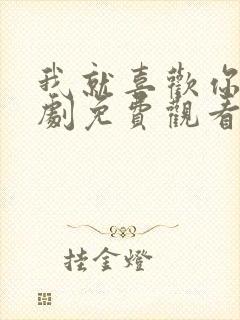 我就喜歡你
劇免費觀看
挂金燈